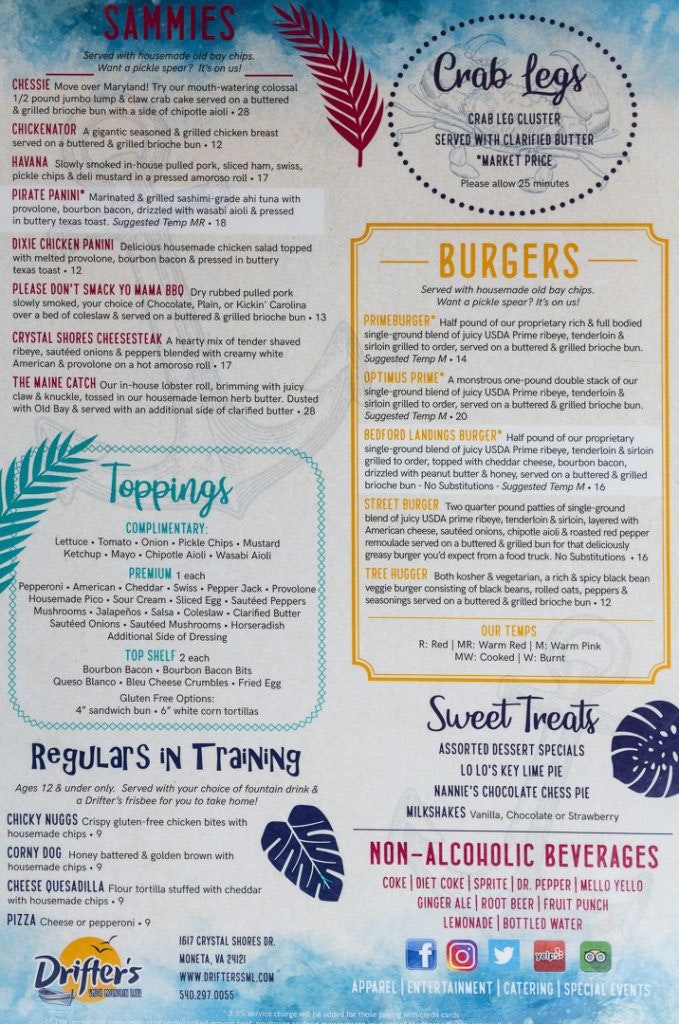 SAMMIES
Served with housemade old bay chips.
Want a pickle spear? It's on us!
CHESSIE Move over Maryland! Try our mouth-watering colossal
1/2 pound jumbo lump & claw crab cake served on a buttered
& grilled brioche bun with a side of chipotle aioli • 28
CHICKENATOR A gigantic seasoned & grilled chicken breast
served on a buttered & grilled brioche bun • 12
HAVANA Slowly smoked in-house pulled pork, sliced ham, swiss,
pickle chips & deli mustard in a pressed amoroso roll • 17
PIRATE PANINI* Marinated & grilled sashimi-grade ahi tuna with
provolone, bourbon bacon, drizzled with wasabi aioli & pressed
in buttery texas toast. Suggested Temp MR • 18
DIXIE CHICKEN PANINI Delicious housemade chicken salad topped
with melted provolone, bourbon bacon & pressed in buttery
texas toast • 12
PLEASE DON'T SMACK YO MAMA BBQ Dry rubbed pulled pork
slowly smoked, your choice of Chocolate, Plain, or Kickin' Carolina
over a bed of coleslaw & served on a buttered & grilled brioche bun • 13
CRYSTAL SHORES CHEESESTEAK A hearty mix of tender shaved
ribeye, sautéed onions & peppers blended with creamy white
American & provolone on a hot amoroso roll • 17
THE MAINE CATCH Our in-house lobster roll, brimming with juicy
claw & knuckle, tossed in our housemade lemon herb butter. Dusted
with Old Bay & served with an additional side of clarified butter • 28
Crab Legs
CRAB LEG CLUSTER
SERVED WITH CLARIFIED BUTTER
*MARKET PRICE
Please allow 25 minutes
BURGERS
Served with housemade old bay chips.
Want a pickle spear? It's on us!
PRIMEBURGER* Half pound of our proprietary rich & full bodied
single-ground blend of juicy USDA Prime ribeye, tenderloin &
sirloin grilled to order, served on a buttered & grilled brioche bun.
Suggested Temp M • 14
OPTIMUS PRIME* A monstrous one-pound double stack of our
single-ground blend of juicy USDA Prime ribeye, tenderloin &
sirloin grilled to order, served on a buttered & grilled brioche bun.
Suggested Temp M • 20
BEDFORD LANDINGS BURGER* Half pound of our proprietary
single-ground blend of juicy USDA Prime ribeye, tenderloin & sirloin
grilled to order, topped with cheddar cheese, bourbon bacon,
drizzled with peanut butter & honey, served on a buttered & grilled
brioche bun - No Substitutions - Suggested Temp M • 16
STREET BURGER Two quarter pound patties of single-ground
blend of juicy USDA prime ribeye, tenderloin & sirloin, layered with
American cheese, sautéed onions, chipotle aioli & roasted red pepper
remoulade served on a buttered & grilled bun for that deliciously
greasy burger you'd expect from a food truck. No Substitutions • 16
TREE HUGGER Both kosher & vegetarian, a rich & spicy black bean
veggie burger consisting of black beans, rolled oats, peppers &
seasonings served on a buttered & grilled brioche bun • 12
OUR TEMPS
R: Red | MR: Warm Red | M: Warm Pink
MW: Cooked | W: Burnt
Toppings
COMPLIMENTARY:
Lettuce • Tomato • Onion • Pickle Chips • Mustard
Ketchup • Mayo • Chipotle Aioli • Wasabi Aioli
PREMIUM 1 each
Pepperoni • American • Cheddar • Swiss • Pepper Jack • Provolone
Housemade Pico • Sour Cream • Sliced Egg • Sautéed Peppers
Mushrooms • Jalapeños • Salsa • Coleslaw • Clarified Butter
Sautéed Onions • Sautéed Mushrooms • Horseradish
Additional Side of Dressing
TOP SHELF 2 each
Bourbon Bacon • Bourbon Bacon Bits
Queso Blanco • Bleu Cheese Crumbles • Fried Egg
Gluten Free Options:
4" sandwich bun • 6" white corn tortillas
Regulars in Training
Ages 12 & under only. Served with your choice of fountain drink &
a Drifter's frisbee for you to take home!
CHICKY NUGGS Crispy gluten-free chicken bites with
housemade chips • 9
CORNY DOG Honey battered & golden brown with
housemade chips • 9
CHEESE QUESADILLA Flour tortilla stuffed with cheddar
with housemade chips • 9
PIZZA Cheese or pepperoni • 9
Sweet Treats
ASSORTED DESSERT SPECIALS
LO LO'S KEY LIME PIE
NANNIE'S CHOCOLATE CHESS PIE
MILKSHAKES Vanilla, Chocolate or Strawberry
NON-ALCOHOLIC BEVERAGES
COKE | DIET COKE | SPRITE | DR. PEPPER | MELLO YELLO
GINGER ALE | ROOT BEER | FRUIT PUNCH
LEMONADE | BOTTLED WATER
Drifter's
SMITH MOUNTAIN LAKE
1617 CRYSTAL SHORES DR.
MONETA, VA 24121
WWW.DRIFTERSSML.COM
540.297.0055
yelp
APPAREL | ENTERTAINMENT | CATERING | SPECIAL EVENTS
3.5% service charge will be added for those paying with credit cards